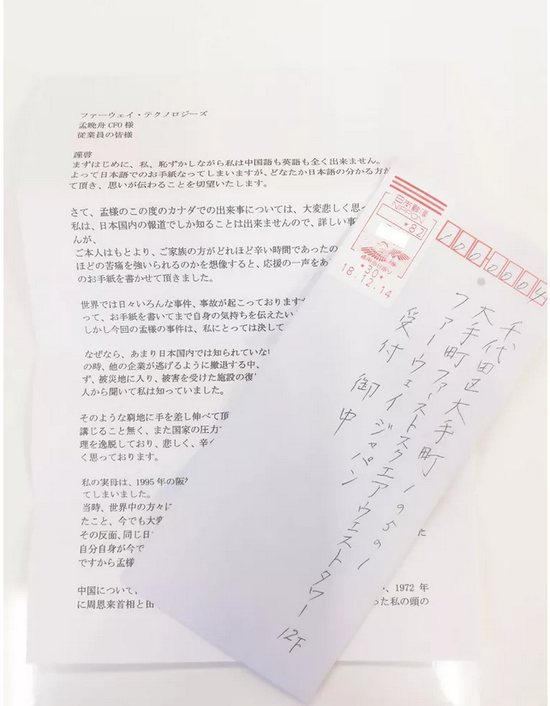 ファーウェイ・テクノロジーズ
孟晩舟 CFO 様
従業員の皆様
謹啓
まずはじめに、私、恥ずかしながら私は中国語も英語も全く出来ません。
よって日本語でのお手紙なってしまいますが、どなたか日本語の分かる方が
て頂き、思いが伝わることを切望いたします。
さて、孟様のこの度のカナダでの出来事については、大変悲しく思っ
私は、日本国内の報道でしか知ることは出来ませんので、詳しい事
んが、
ご本人はもとより、ご家族の方がどれほど辛い時間であったの
ほどの苦痛を強いられるのかを想像すると、応援の一声をあ
のお手紙を書かせて頂きました。
世界では日々いろんな事件、事故が起こっておりますが
って、お手紙を書いてまで自身の気持ちを伝えたい
しかし今回の孟様の事件は、私にとっては決して
なぜなら、あまり日本国内では知られていない
の時、他の企業が逃げるように撤退する中、
ず、被災地に入り、被害を受けた施設の復
人から聞いて私は知っていました。
そのような窮地に手を差し伸べて頂
講じること無く、また国家の圧力
理を逸脱しており、悲しく、辛く
く思っております。
私の実母は、1995 年の阪
てしまいました。
当時、世界中の方々に
たこと、今でも大変
その反面、同じ日
自分自身が今で
ですから孟様
中国について、
、1972 年
に周恩来首相と田
った私の頭の
日本郵便
NIPPON
82
18.12.14
1000004
千代田区大手町1の5の1
大手町ファーストスクエアウエストタワー12F
ファーウェイジャパン
受付 御中